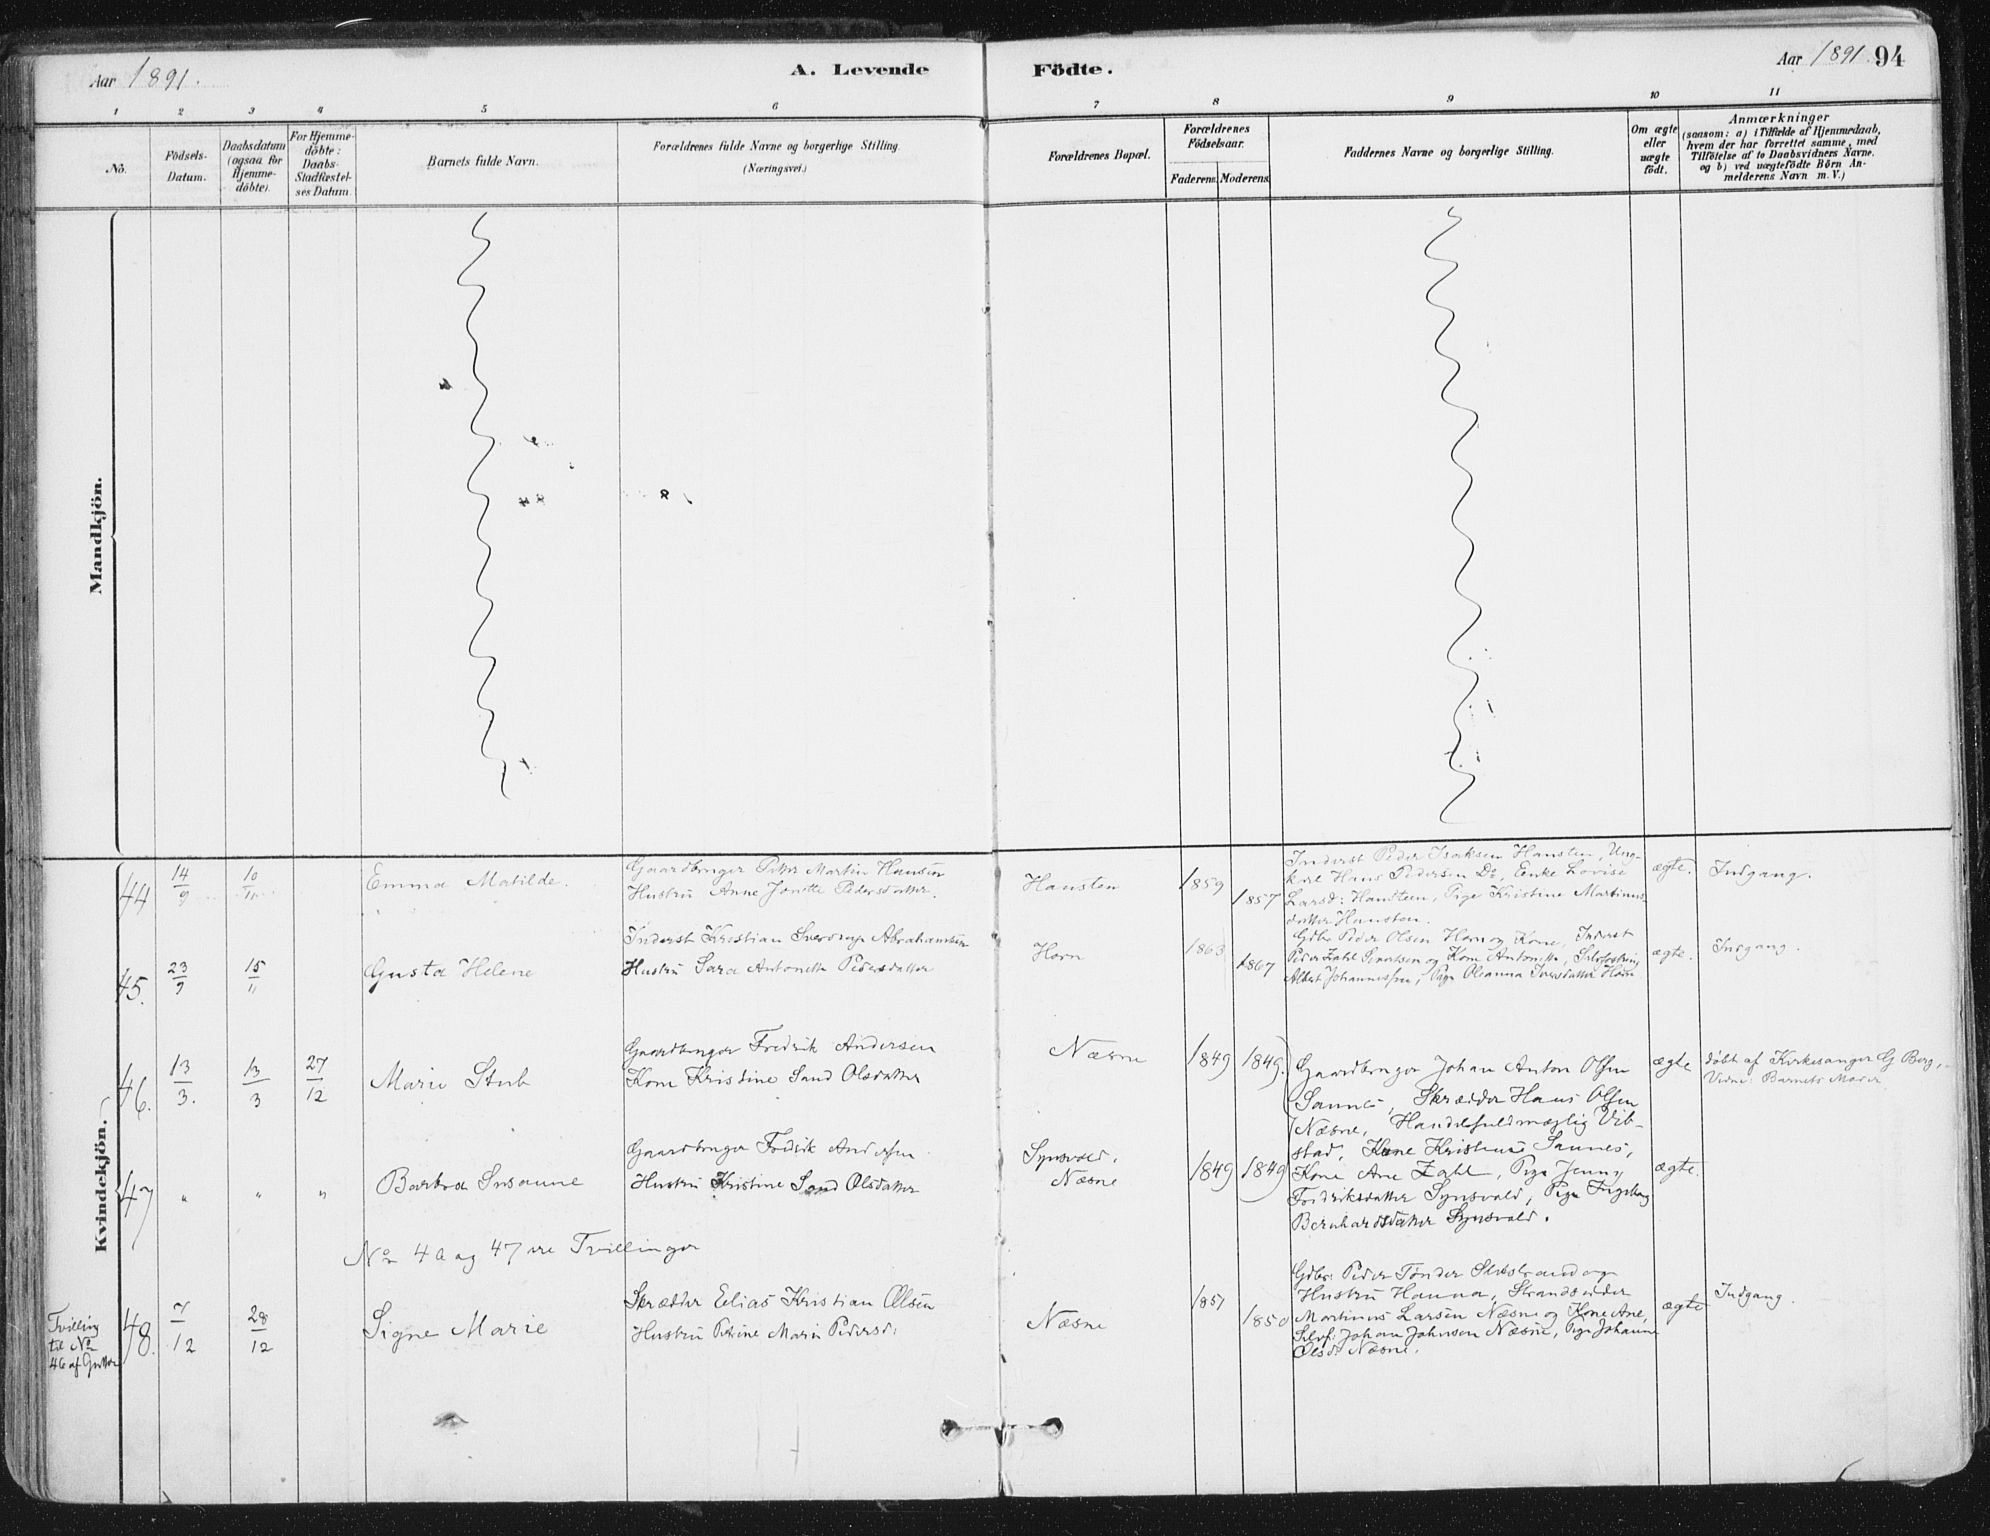 Aar 1891.
A. Levende Födte.
Aar 1891. 94
1 2 3 4 5 6 7 8 9 10 11
No.
Födsels-Datum.
Daabsdatum (ogsaa for Hjemme-döbte).
For Hjemme-döbte: Daabs-Stadfæstel-ses Datum.
Barnets fulde Navn.
Forældrenes fulde Navne og borgerlige Stilling. (Næringsvei.)
Forældrenes Bopæl.
Forældrenes Födselsaar.
Faderens. Moderens.
Faddernes Navne og borgerlige Stilling.
Om ægte eller uægte födt.
Anmærkninger
(saasom: a) i Tilfælde af Hjemmedaab,
hvem der har forrettet samme, med
Tilföielse af to Daabsvidners Navne.
og b) ved uægtefödte Börn An-
melderens Navn m. V.)
Mandkjön.
Kvindekjön.
44 14/9 10/11 Emma Matilde.
Gaardbruger Petter Martin Hansen
Hustru Anne Jonette Pedersdatter.
Hansten 1859 1857
Inderst Peder Isaksen Hansten, Ung-
karl Hans Pedersen Do, Enke Lovise
Larsd: Hansteen, Pige Kristine Martinus-
datter Hansten.
ægte. Indgang.
45. 23/9 15/11 Gusta Helene
Inderst Kristian Sverdrup Abrahamsen
Hustru Sara Antonette Pedersdatter
Horn 1863 1867
Gdbr Peder Olsen Horn og Kone, Inderst
Peder Zahl og Kone Antonette,
Albert Johannessen, Pige Oleanna Iversdatter Horn
ægte. Indgang.
46. 13/3. 13/3 27/12 Marie Stub
Gaardbruger Fredrik Andersen
Kone Kristine Sand Olsdatter
Næsne 1849 1849.
Gaardbruger Johan Anton Olsen
Sannes, Skrædder Hans Olsen
Næsne, Handelsfuldmægtig Vib-
stad, Kone Kristense Sannes,
Kone Ane Zahl, Pige Jenny
Fredriksdatter Synsvold, Pige Ingeborg
Bernhardsdatter Synsvold.
ægte
døbt af Kirkesanger G Berg,
Vidne: Barnets Moder
47 " " " Barbra Susanne
Gaardbruger Fredrik Andersen
Hustru Kristine Sand Olsdatter
Synsvold.
Næsne 1849 1849 ægte.
No 46 og 47 ere Tvillinger
Tvilling
til No
46 af Gutter
48. 7/12 28/12 Signe Marie
Skrædder Elias Kristian Olsen
Hustru Petrine Marie Pedersd:
Næsne 1857 1850
Gdbr: Peder Tønder og
Hustru Hanna, Strandsidder
Martinus Larsen Næsne og Kone Ane,
Selvf: Johan Johnsen Næsne, Pige Johanne
Olsd: Næsne.
ægte Indgang.